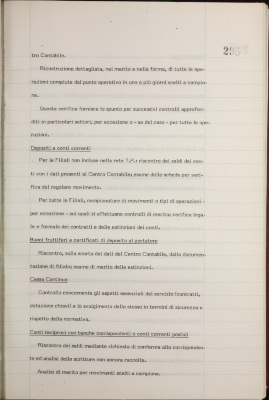 295
tro Contabile.
Ricostruzione dettagliata, nel merito e nella forma, di tutte le ope-
razioni compiute dal punto operativo in uno o più giorni scelti a campio-
ne.
Questa verifica fornisce lo spunto per successivi controlli approfon-
diti in particolari settori, per occasione o - se del caso - per tutte le ope-
razioni.
Depositi e conti correnti
Per le Filiali non incluse nella rete riscontro dei saldi dei con-
ti con i dati presenti al Centro Contabile; esame delle schede per veri-
fica del regolare movimento.
Per tutte le Filiali, campionatura di movimenti o tipi di operazioni -
per occasione - sui quali si effettuano controlli di merito; verifica lega-
le e formale dei contratti e delle estinzioni dei conti.
Buoni fruttiferi e certificati di deposito al portatore
Riscontro, sulla scorta dei dati del Centro Contabile, della documen-
tazione di filiale; esame di merito delle estinzioni.
Cassa Continua
Controllo concernente gli aspetti essenziali del servizio (contratti,
dotazione chiavi) e lo svolgimento dello stesso in termini di sicurezza e
rispetto della normativa.
Conti reciproci con banche corrispondenti e conti correnti postali
Riscontro dei saldi mediante richiesta di conferma alla corrisponden-
te ed analisi delle scritture non ancora raccolte.
Analisi di merito per movimenti scelti a campione.